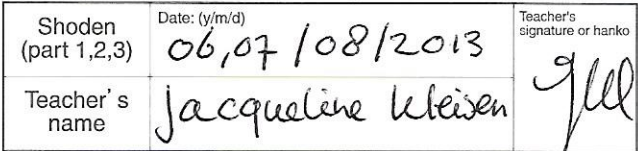 Shoden
(part 1,2,3)
Date: (y/m/d)
06,07 /08/2013
Teacher's
signature or hanko
Teacher's
name
Jacqueline